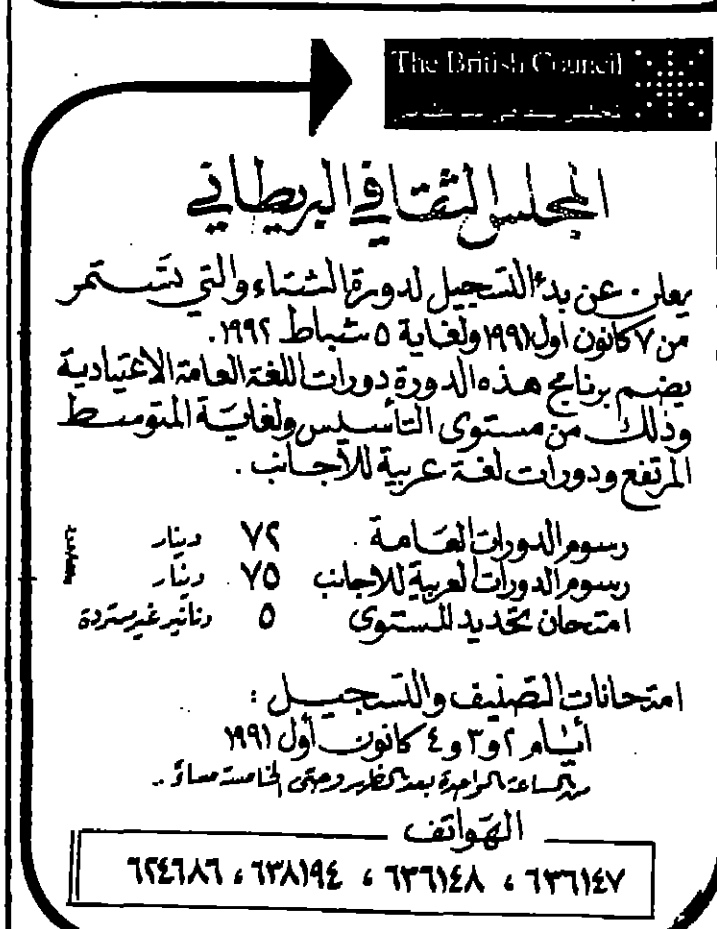 The British Council
المجلس الثقافي البريطاني
يعلن عن بدء التسجيل لدورة الشتاء والتي تستمر
من ٧ كانون اول ١٩٩١ ولغاية ٥ شباط ١٩٩٢.
يضم برنامج هذه الدورة دورات اللغة العامة الاعتيادية
وذلك من مستوى التأسيس ولغاية المتوسط
المرتفع ودورات لغة عربية للأجانب.
رسوم الدورات العامة ٧٢ دينار
رسوم الدورات العربية للاجانب ٧٥ دينار
امتحان تحديد المستوى ٥ دنانير غير مستردة
امتحانات التصنيف والتسجيل :
أيام ٢ و٣ و٤ كانون أول ١٩٩١
من الساعة الواحدة بعد الظهر وحتى الخامسة مساءً ..
الهواتف
٦٣٦١٤٧ ، ٦٣٦١٤٨ ، ٦٣٨١٩٤ ، ٦٢٤٦٨٦